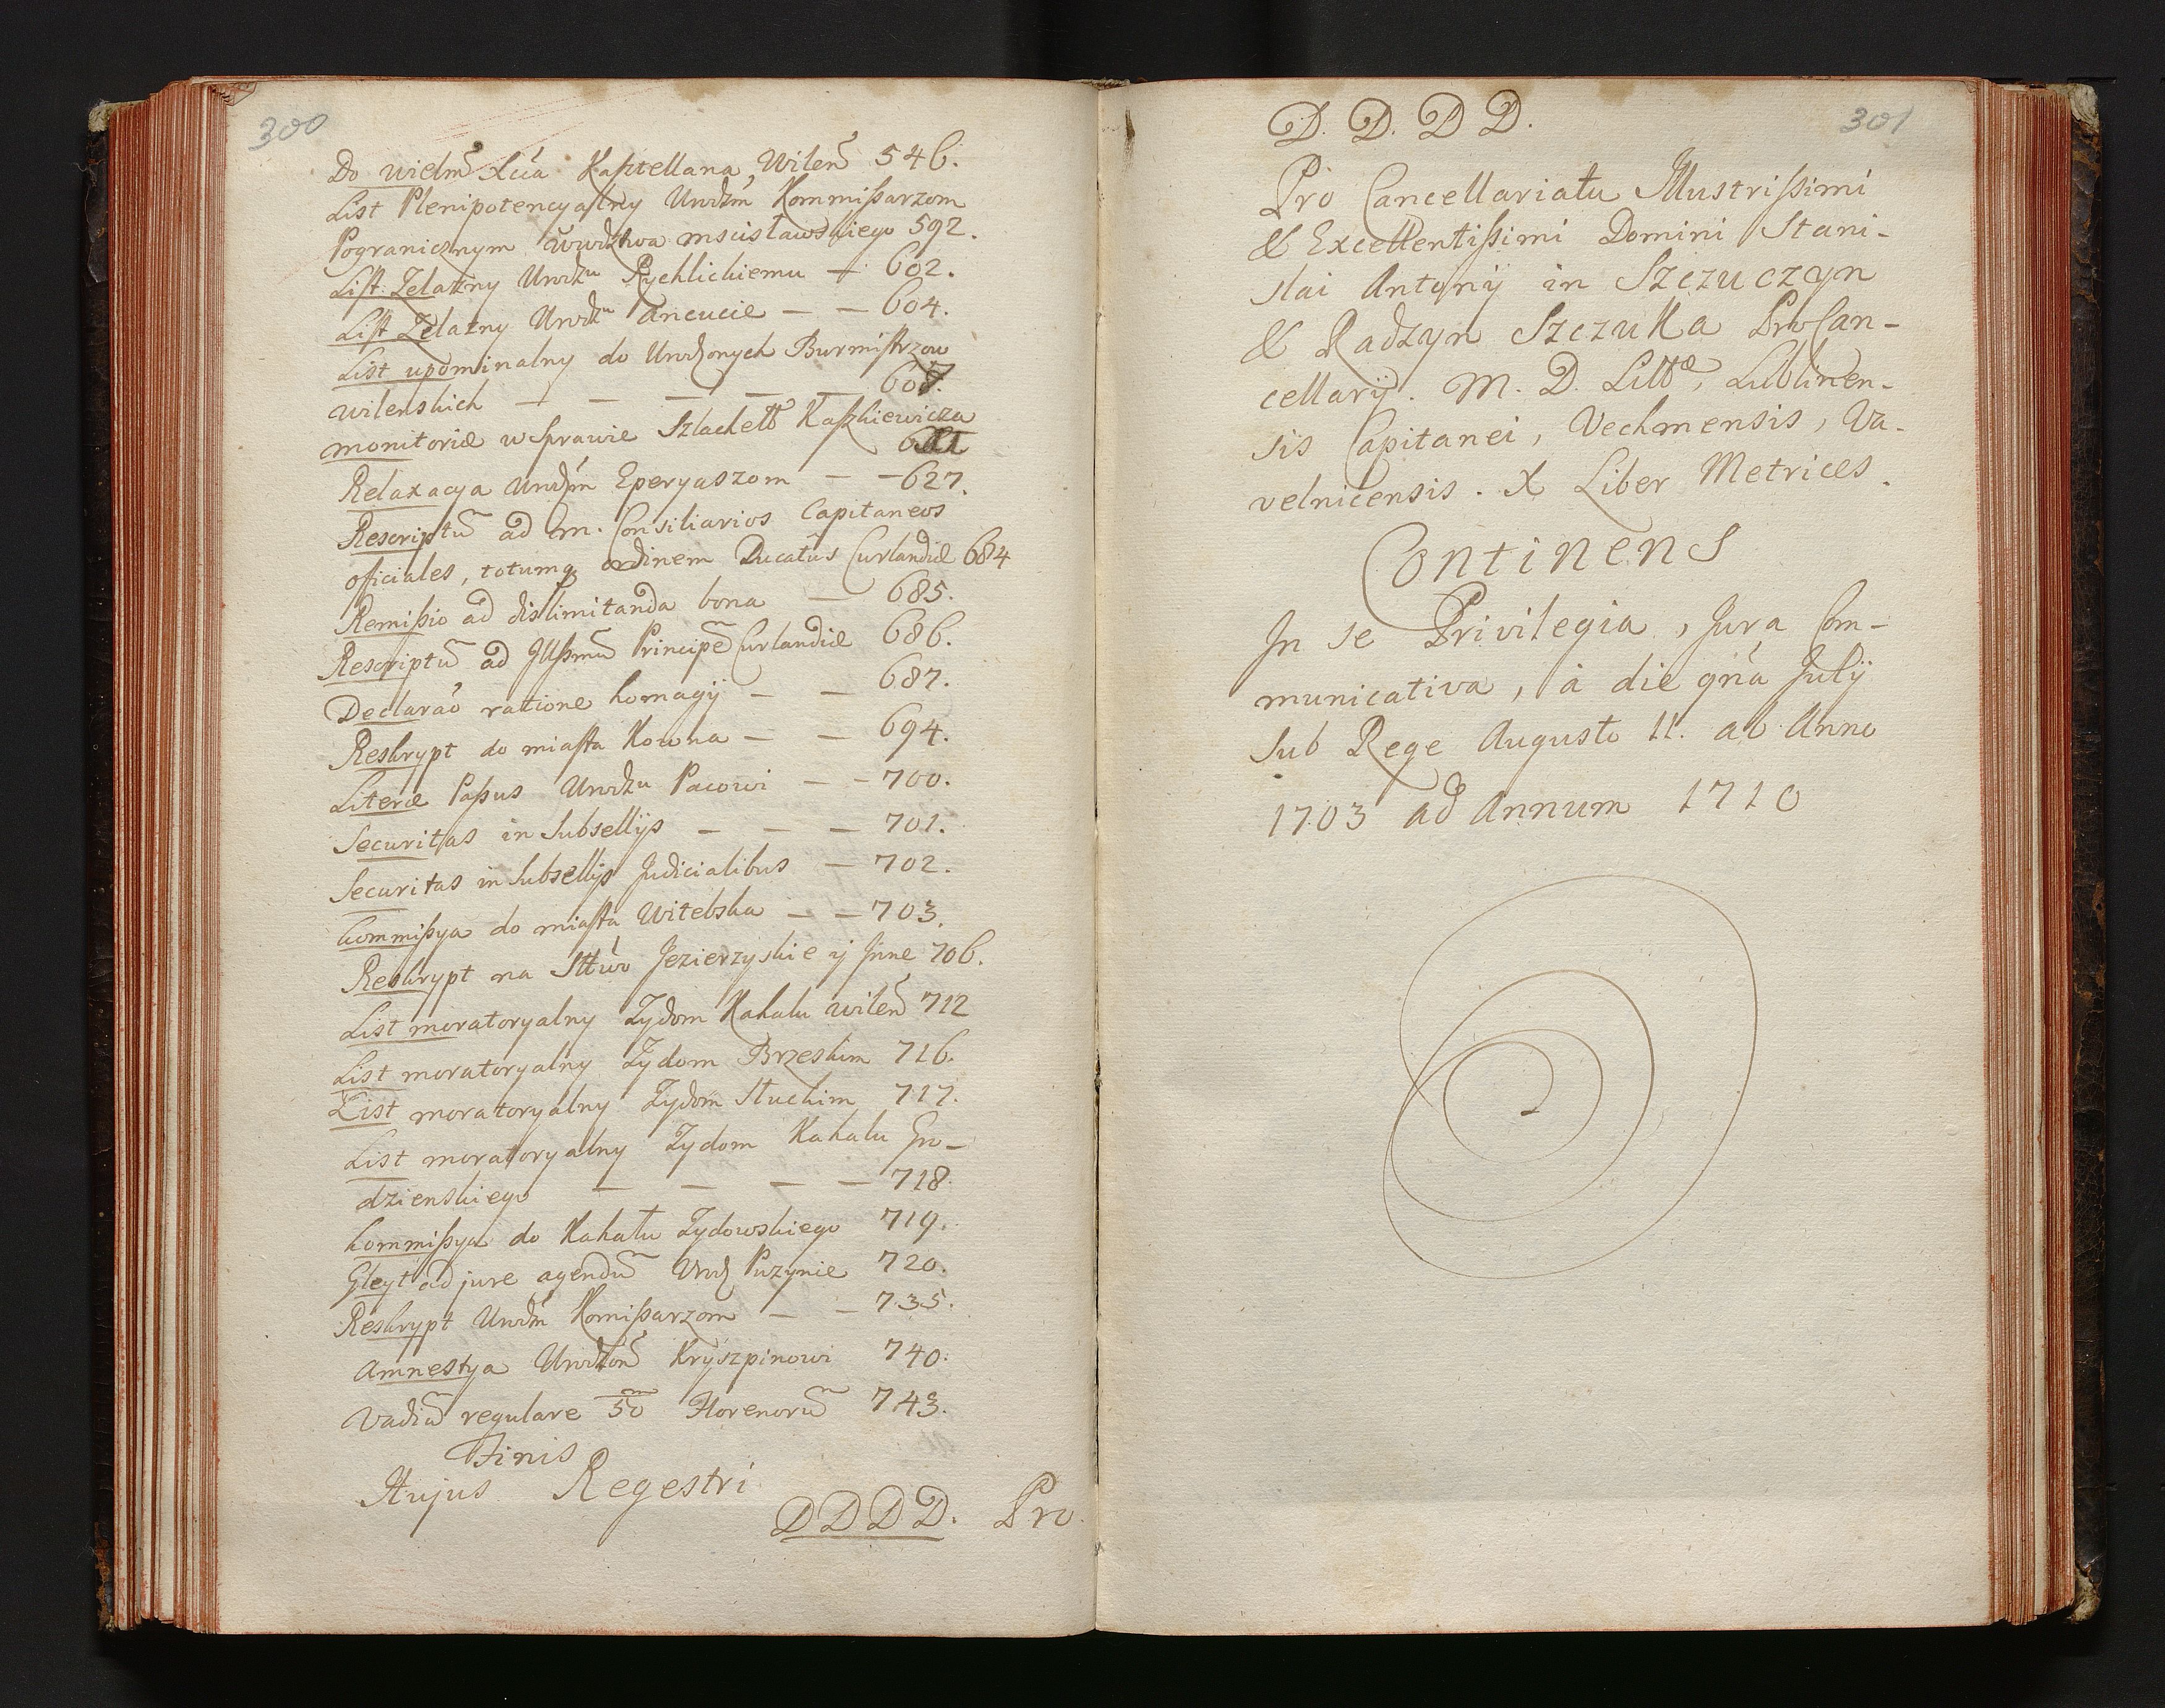 300
Do wielm̃ Xcia Kasztellana Wileñ 546.
List Plenipotencyalny Urodzm̃ Kommißarzom
Pogranicznym wwdztwa mscisławskiego 592.
List Zelazny Urodzu Rychlickiemu — 602.
List Zelazny Urodzu Ancucie — — 604.
List upominalny do Urodzonych Burmistrzow
wilenskich — — — — — 607.
monitoriæ w Sprawie Szlachett Kaszkiewicza
Relaxacya Urodzm̃ Eperyaszom — — 627.
Rescriptũ ad Gn. Consiliarios Capitaneos
oficiales, totumq ordinem Ducatus Curlandiæ 684
Remißio ad dislimitanda bona — 685.
Rescriptũ ad Illßmũ Principẽ Curlandiæ 686.
Declarao ratione homagij — — 687.
Reskrypt do miasta Kowna — — 694.
Literæ Paßus Urodzu Pacowi — — 700.
Securitas in Subsellijs — — — 701.
Securitas in Subsellijs Judicialibus — 702.
Kommißya do miasta Witebska — — 703.
Reskrypt na Sttwo Jezierzyskie ij Jnne 706.
List moratoryalny Zydom Kahału wileñ 712
List moratoryalny Zydom Brzeskim 716.
List moratoryalny Zydom Słuckim 717.
List moratoryalny Zydom Kahału Gro-
dzienskiego — — — — 718.
Kommißya do Kahału Zydowskiego 719.
Gleyt ad jure agendũ Urodz Puzynie 720.
Reskrypt Urodzm̃ Komißarzom — — 735.
Amnestya Urodzon̄ Kryszpinowi 740.
Vadiũ regulare 50 m Florenorũ 743.
Finis
Hujus Regestri
DDDD. Pro.
D. D. D D.
301
Pro Cancellariatu Jllustrißimi
& Excellentißimi Domini Stani-
slai Antonij in Szczuczyn
& Radzyn Szczuka ProCan-
cellarij. M. D. Littæ, Lublinen-
sis Capitanei, Vechmensis, Va-
velnicensis. X Liber Metrices.
Continens
In se Privilegia, Jura Com-
municativa, à die 9na Julij
Sub Rege Augusto II. ab Anno
1703 ad Annum 1710